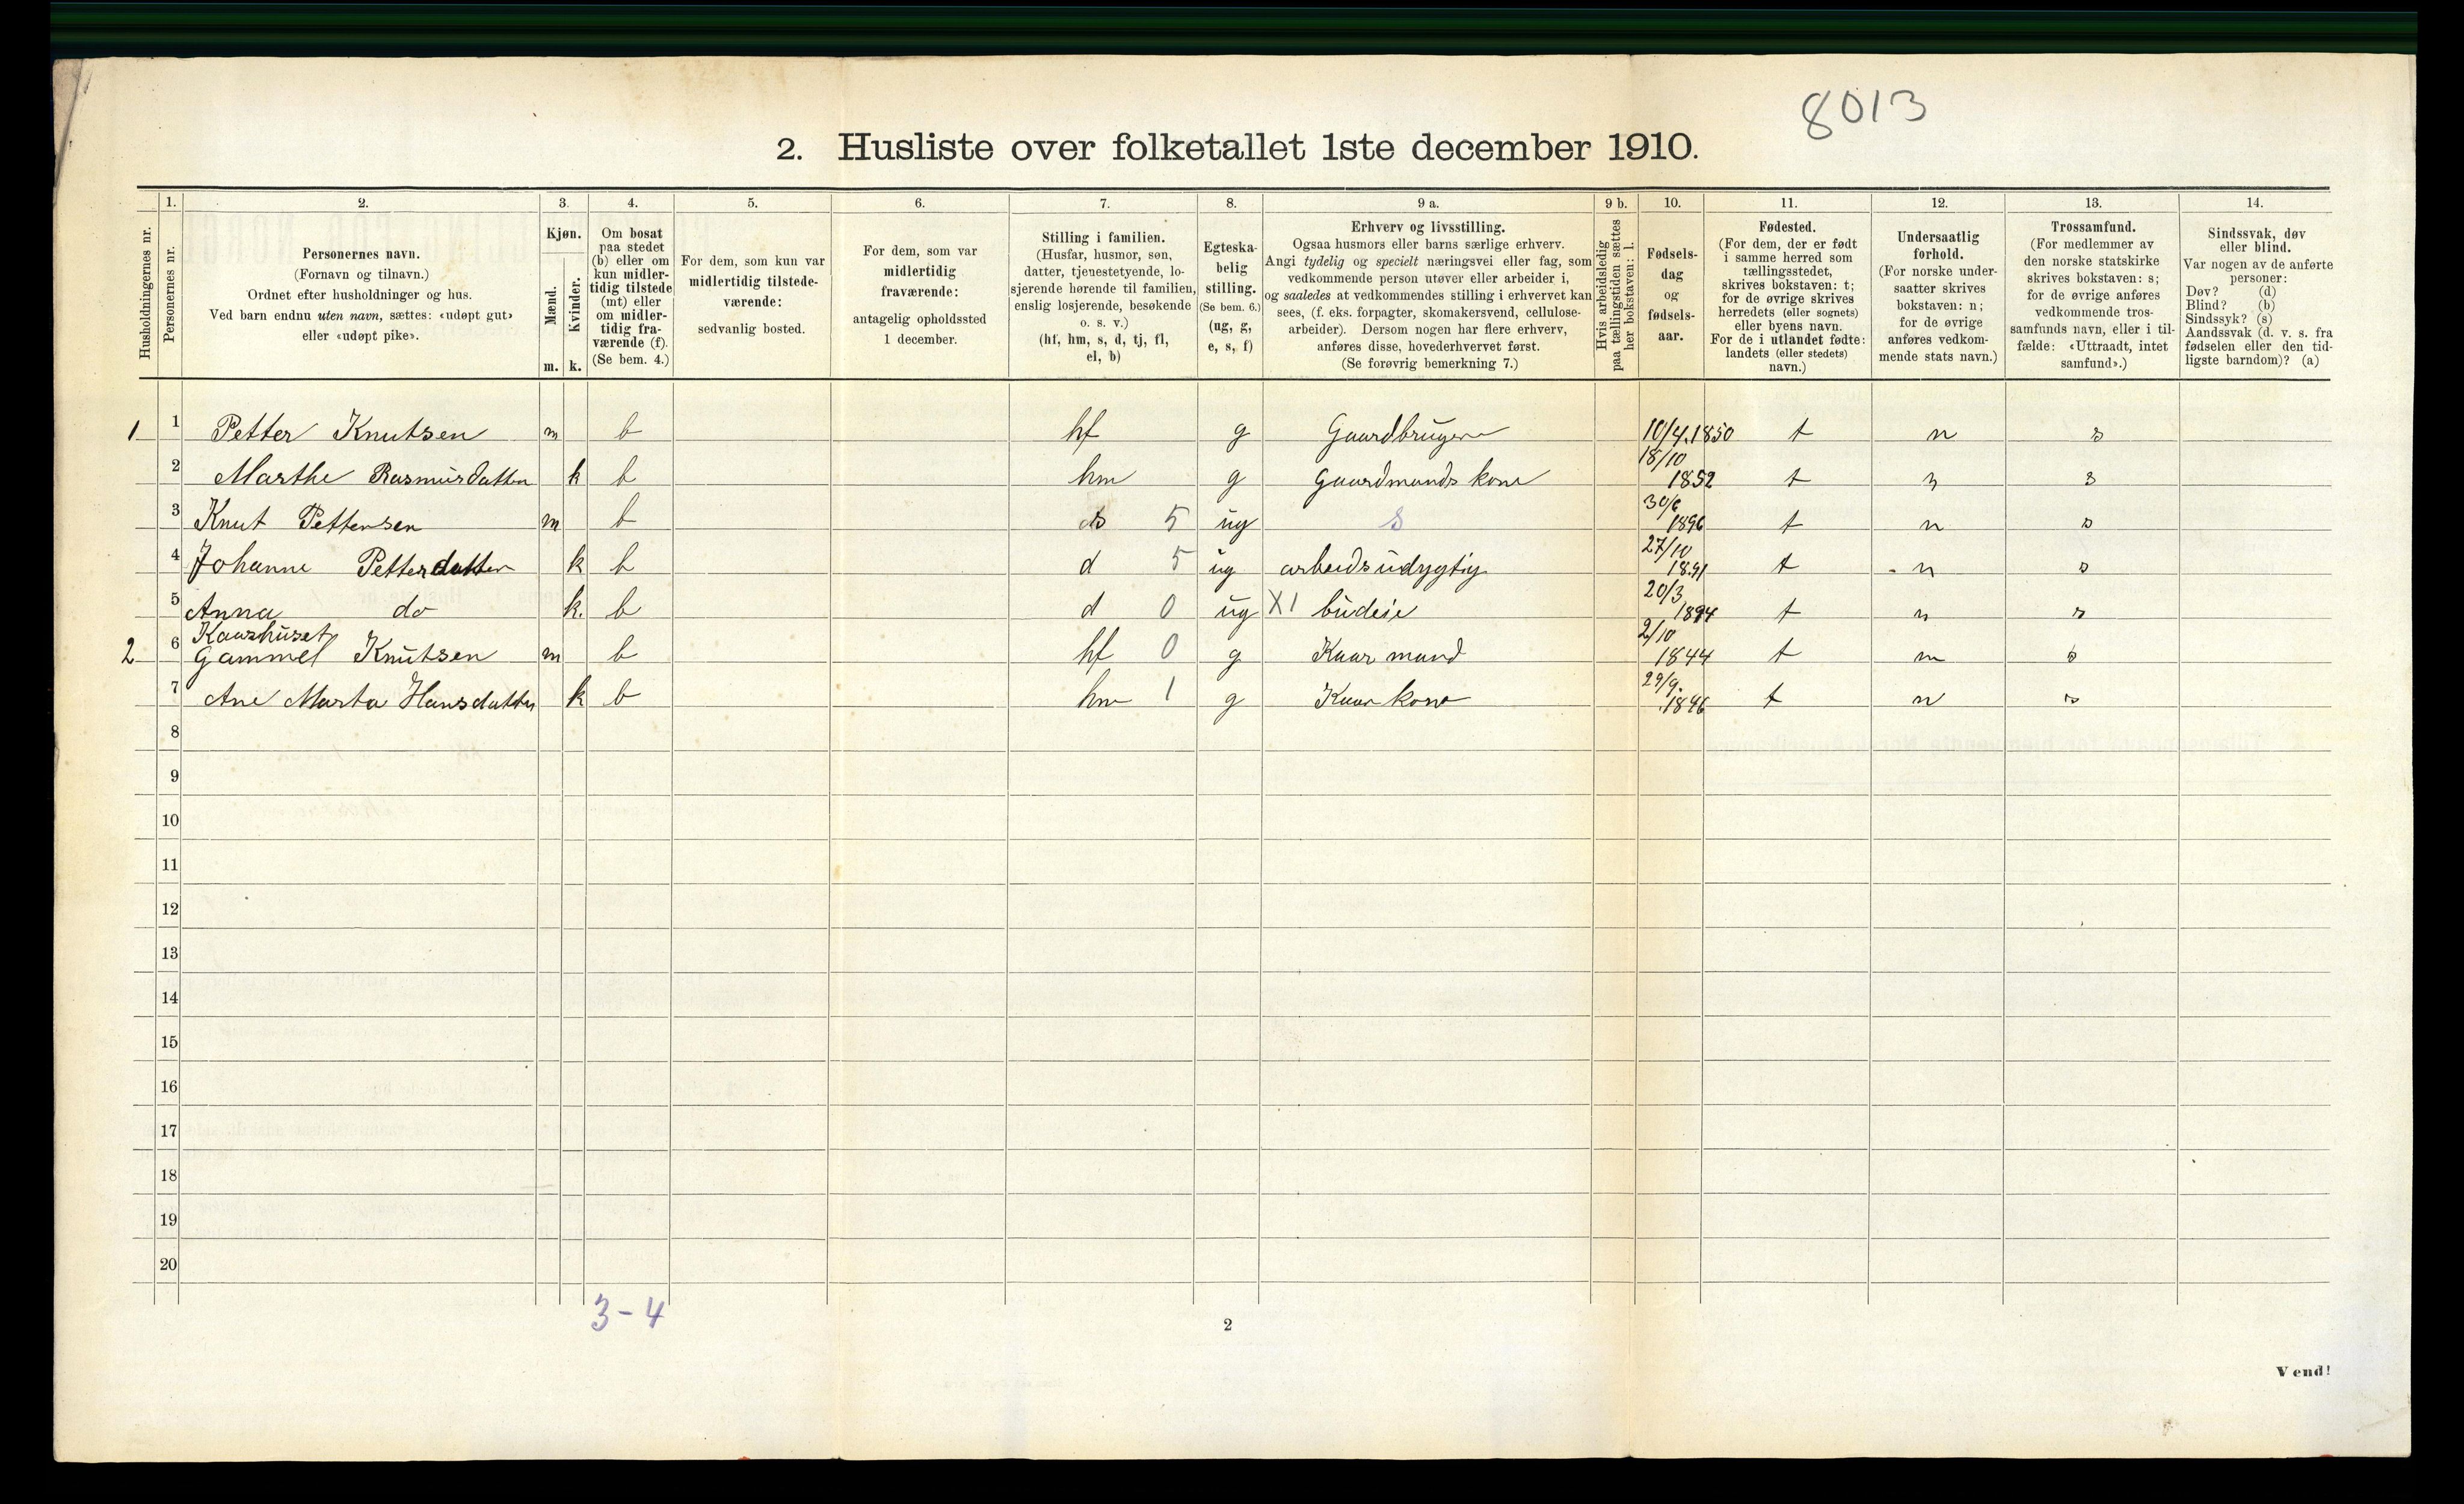 8013
2. Husliste over folketallet 1ste december 1910.
Husholdningernes nr.
1.
Personernes nr.
2.
Personernes navn.
(Fornavn og tilnavn.)
Ordnet efter husholdninger og hus.
Ved barn endnu uten navn, sættes: «udøpt gut»
eller «udøpt pike».
3.
Kjøn.
Mænd.
Kvinder.
m. k.
4.
Om bosat
paa stedet
(b) eller om
kun midler-
tidig tilstede
(mt) eller
om midler-
tidig fra-
værende (f).
(Se bem. 4.)
5.
For dem, som kun var
midlertidig tilstede-
værende:
sedvanlig bosted.
6.
For dem, som var
midlertidig
fraværende:
antagelig opholdssted
1 december.
7.
Stilling i familien.
(Husfar, husmor, søn,
datter, tjenestetyende, lo-
sjerende hørende til familien,
enslig losjerende, besøkende
o. s. v.)
(hf, hm, s, d, tj, fl,
el, b)
8.
Egteska-
belig
stilling.
(Se bem. 6.)
(ug, g,
e, s, f)
9 a.
Erhverv og livsstilling.
Ogsaa husmors eller barns særlige erhverv.
Angi tydelig og specielt næringsvei eller fag, som
vedkommende person utøver eller arbeider i,
og saaledes at vedkommendes stilling i erhvervet kan
sees, (f. eks. forpagter, skomakersvend, cellulose-
arbeider). Dersom nogen har flere erhverv,
anføres disse, hovederhvervet først.
(Se forøvrig bemerkning 7.)
9 b.
Hvis arbeidsledig
paa tællingstiden sættes
her bokstaven: l.
10.
Fødsels-
dag
og
fødsels-
aar.
11.
Fødested.
(For dem, der er født
i samme herred som
tællingsstedet,
skrives bokstaven: t;
for de øvrige skrives
herredets (eller sognets)
eller byens navn.
For de i utlandet fødte:
landets (eller stedets)
navn.)
12.
Undersaatlig
forhold.
(For norske under-
saatter skrives
bokstaven: n;
for de øvrige
anføres vedkom-
mende stats navn.)
13.
Trossamfund.
(For medlemmer av
den norske statskirke
skrives bokstaven: s;
for de øvrige anføres
vedkommende tros-
samfunds navn, eller i til-
fælde: «Uttraadt, intet
samfund».)
14.
Sindssvak, døv
eller blind.
Var nogen av de anførte
personer:
Døv? (d)
Blind? (b)
Sindssyk? (s)
Aandssvak (d. v. s. fra
fødselen eller den tid-
ligste barndom)? (a)
1 1 Petter Knutsen m b hf g Gaardbruger 10/4.1850 t n s
2 Marthe Rasmusdatter k b hm g Gaardmands kone 18/10 1852 t n s
3 Knut Pettersen m b s 5 ug s 30/6 1896 t n s
4 Johanne Petterdatter k b d 5 ug arbeidsudygtig 27/10 1891 t n s
5 Anna do k. b d 0 ug X1 budeie 20/3 1894 t n s
Kaarhuset
2 6 Gammel Knutsen m b hf 0 g Kaarmand 2/10 1844 t n s
7 Ane Marta Hansdatter k b hm 1 g Kaarkone 29/9. 1846 t n s
8
9
10
11
12
13
14
15
16
17
18
19
20
3-4
2
Vend!